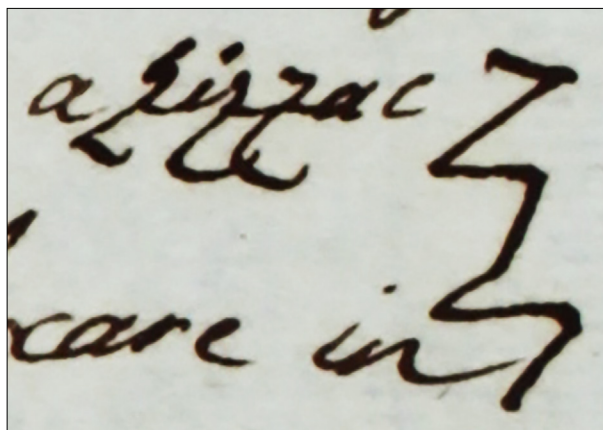 a zizzac
care in